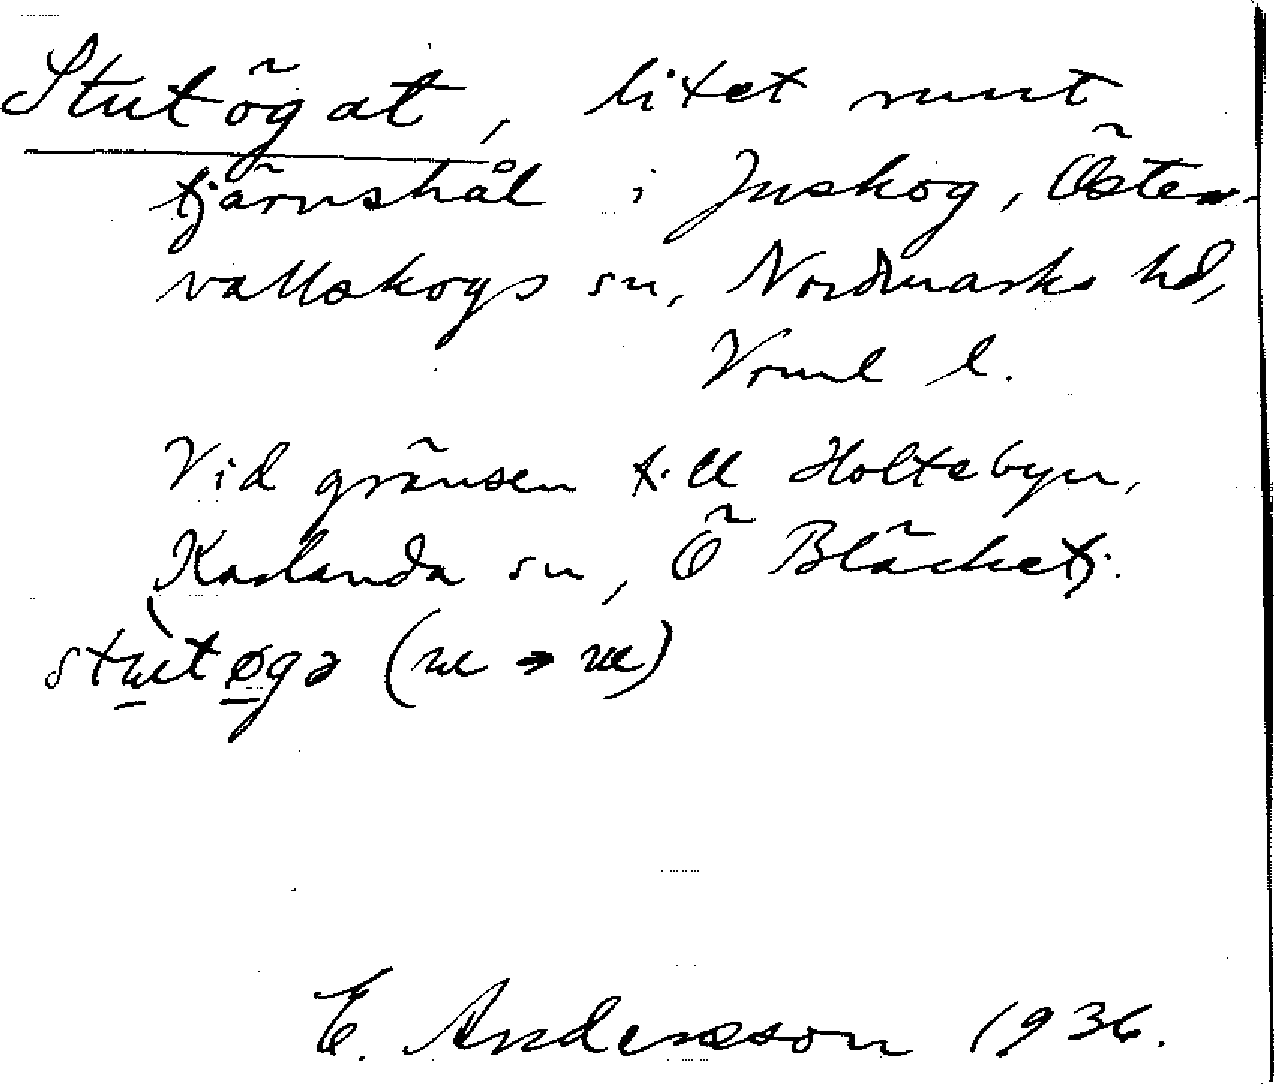 Stutögat, litet runt
tjärnshål i Juskog, Östervallskogs sn, Nordmarks hd,
Vrml l.
Vid gränsen till Holtebyn,
Karlanda sn, Ö Bläcketj.
E. Andersson 1936.